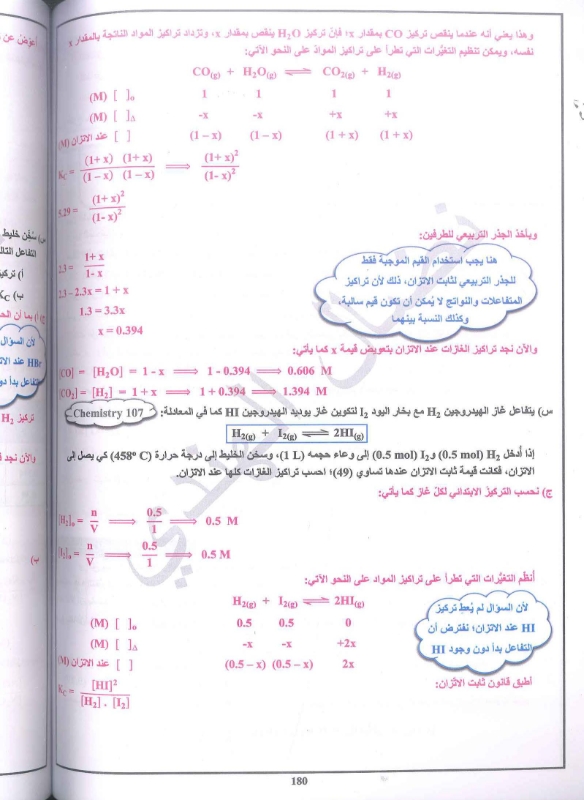 وهذا يعني أنه عندما ينقص تركيز CO بمقدار x؛ فإنّ تركيز H₂O ينقص بمقدار x، وتزداد تراكيز المواد الناتجة بالمقدار x
نفسه، ويمكن تنظيم التغيُّرات التي تطرأ على تراكيز الموادّ على النحو الآتي:
CO(g) + H₂O(g) ⇌ CO₂(g) + H₂(g)
(M) [ ]₀ 1 1 1 1
(M) [ ]Δ -x -x +x +x
(M) عند الاتزان [ ] (1 – x) (1 – x) (1 + x) (1 + x)
K_C = (1+ x) (1+ x) / (1 – x) (1 – x) ⟹ (1+ x)² / (1- x)²
5.29 = (1+ x)² / (1- x)²
وبأخذ الجذر التربيعي للطرفين:
2.3 = 1+ x / 1- x
2.3 – 2.3x = 1 + x
1.3 = 3.3x
x = 0.394
هنا يجب استخدام القيم الموجبة فقط
للجذر التربيعي لثابت الاتزان، ذلك لأن تراكيز
المتفاعلات والنواتج لا يُمكن أن تكون قيم سالبة،
وكذلك النسبة بينهما
والآن نجد تراكيز الغازات عند الاتزان بتعويض قيمة x كما يأتي:
[CO] = [H₂O] = 1 - x ⟹ 1 - 0.394 ⟹ 0.606 M
[CO₂] = [H₂] = 1 + x ⟹ 1 + 0.394 ⟹ 1.394 M
س) يتفاعل غاز الهيدروجين H₂ مع بخار اليود I₂ لتكوين غاز يوديد الهيدروجين HI كما في المعادلة: Chemistry 107
H₂(g) + I₂(g) ⇌ 2HI(g)
إذا أُدخل H₂ (0.5 mol) وI₂ (0.5 mol) إلى وعاء حجمه (1 L)، وسخن الخليط إلى درجة حرارة (458° C) كي يصل إلى
الاتزان، فكانت قيمة ثابت الاتزان عندها تساوي (49)؛ احسب تراكيز الغازات كلها عند الاتزان.
ج) نحسب التركيز الابتدائي لكلّ غاز كما يأتي:
[H₂]₀ = n / V ⟹ 0.5 / 1 ⟹ 0.5 M
[I₂]₀ = n / V ⟹ 0.5 / 1 ⟹ 0.5 M
أنظم التغيُّرات التي تطرأ على تراكيز المواد على النحو الآتي:
H₂(g) + I₂(g) ⇌ 2HI(g)
(M) [ ]₀ 0.5 0.5 0
(M) [ ]Δ -x -x +2x
(M) عند الاتزان [ ] (0.5 – x) (0.5 – x) 2x
لأن السؤال لم يُعطِ تركيز
HI عند الاتزان؛ نفترض أن
التفاعل بدأ دون وجود HI
أطبق قانون ثابت الاتزان:
K_C = [HI]² / [H₂] . [I₂]
180